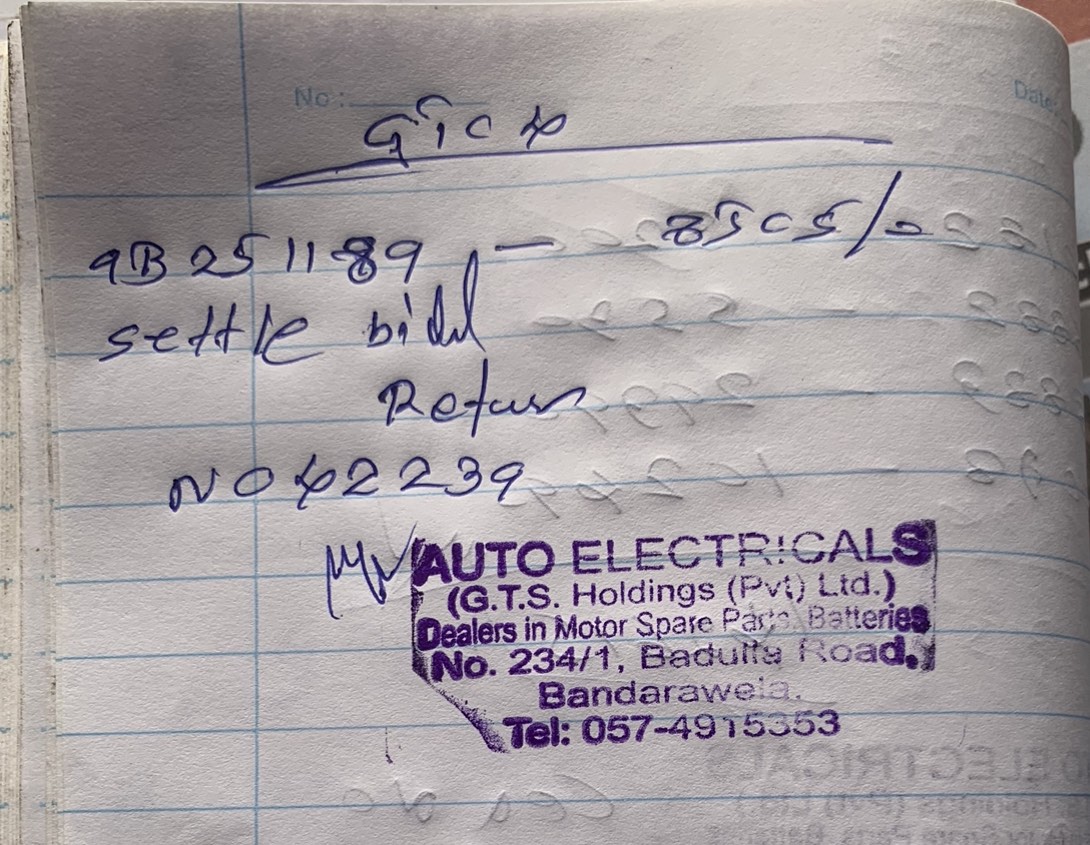 No:
Date:
9B251189 -
settle bill
Return
NO 42239
AUTO ELECTRICALS
(G.T.S. Holdings (Pvt) Ltd.)
Dealers in Motor Spare Parts, Batteries
No. 234/1, Badulla Road,
Bandarawela.
Tel: 057-4915353